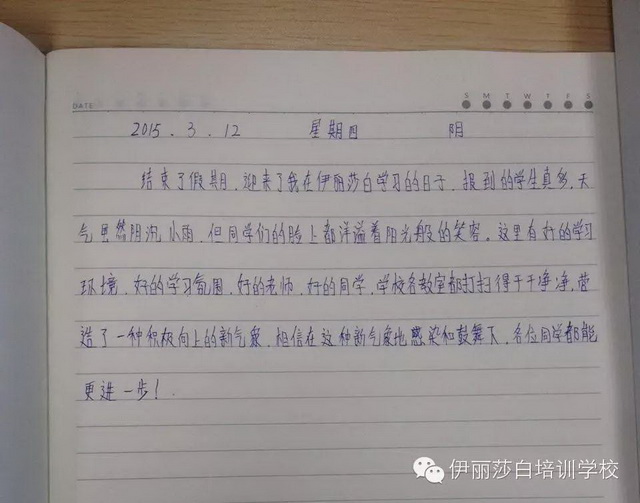 DATE
S M T W T F S
2015.3.12 星期四 阴
结束了假期,迎来了我在伊丽莎白学习的日子,报到的学生真多,天
气虽然阴沉小雨,但同学们的脸上都洋溢着阳光般的笑容。这里有好的学习
环境,好的学习氛围,好的老师,好的同学,学校各教室都打扫得干干净净,营
造了一种积极向上的新气象,相信在这种新气象地感染和鼓舞下,各位同学都能
更进一步!
伊丽莎白培训学校